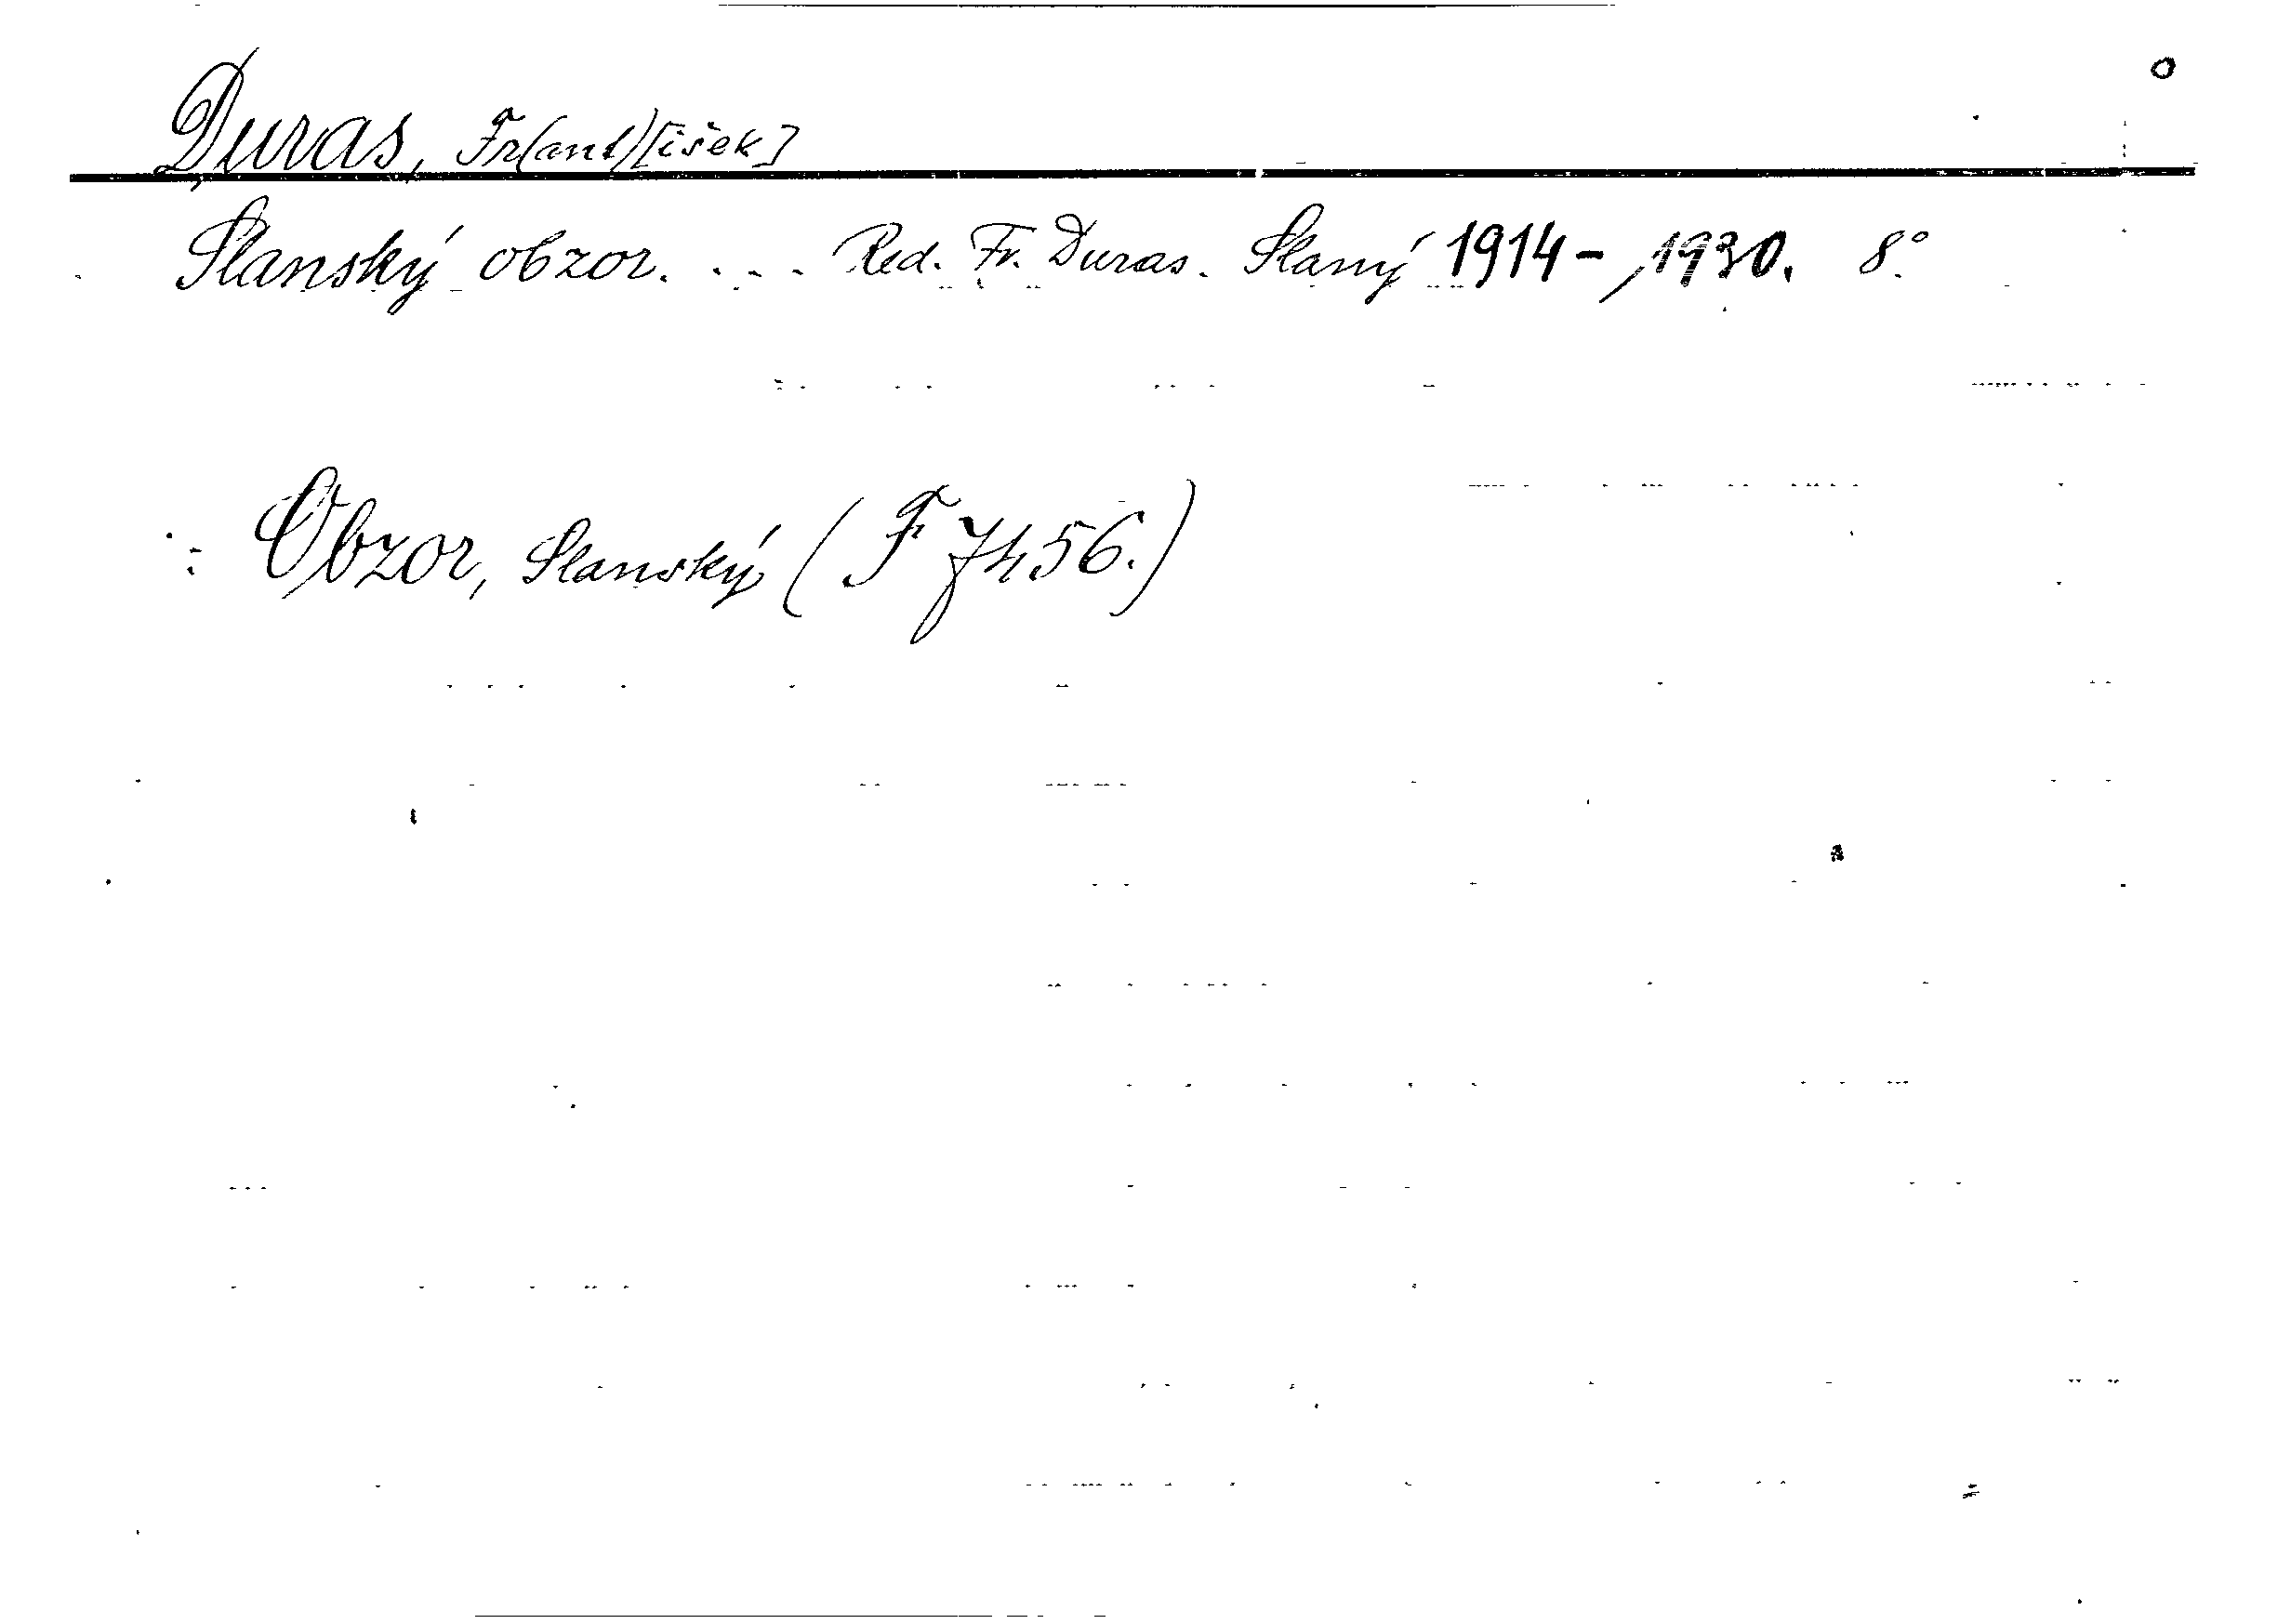 Duras, Fr(ant)[išek]
Slanský obzor. ... Red. Fr. Duras. Slaný 1914-, 1930. 8°.
: Obzor, Slanský (F 7456.)